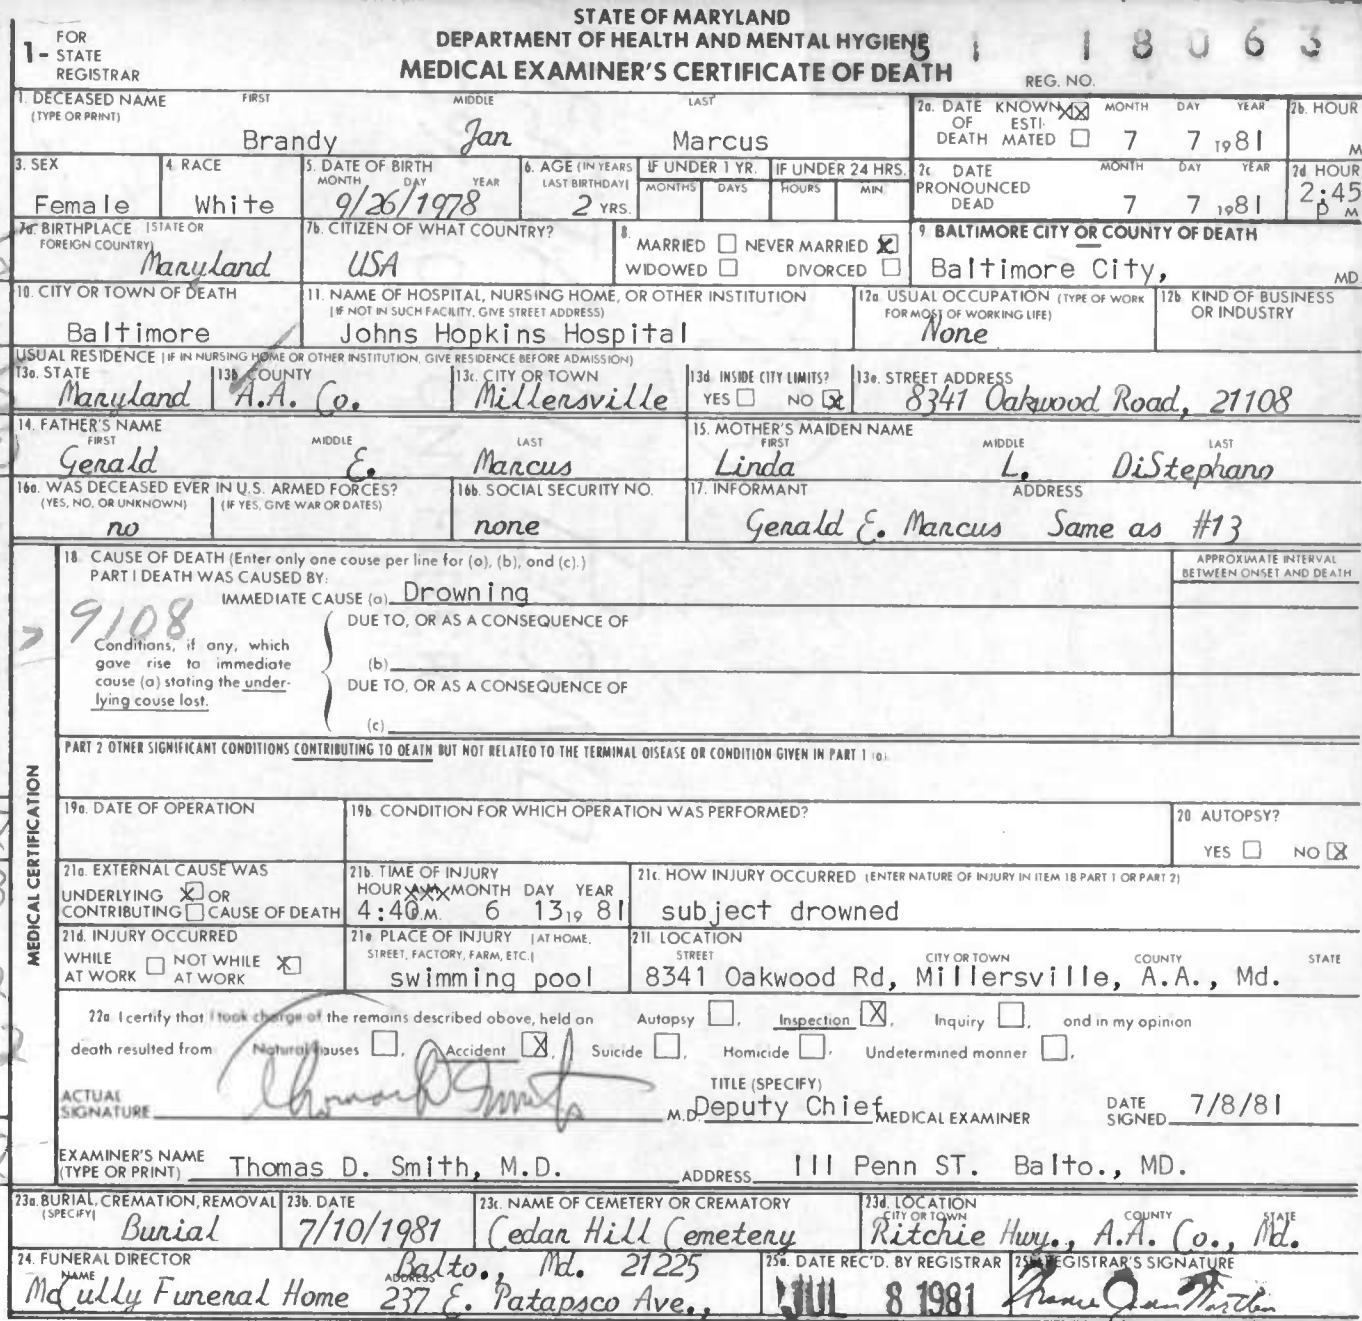 STATE OF MARYLAND
DEPARTMENT OF HEALTH AND MENTAL HYGIENE
MEDICAL EXAMINER'S CERTIFICATE OF DEATH
1- FOR STATE REGISTRAR
REG. NO. 81 18063
1. DECEASED NAME (TYPE OR PRINT) FIRST MIDDLE LAST
Brandy Jan Marcus
2a. DATE OF DEATH KNOWN XX ESTIMATED MONTH DAY YEAR
7 7 1981
2b. HOUR M
3. SEX
Female
4. RACE
White
5. DATE OF BIRTH MONTH DAY YEAR
9/26/1978
6. AGE (IN YEARS LAST BIRTHDAY)
2 YRS.
IF UNDER 1 YR. MONTHS DAYS
IF UNDER 24 HRS. HOURS MIN
2c DATE PRONOUNCED DEAD MONTH DAY YEAR
7 7 1981
2d HOUR
2:45 P M
7a. BIRTHPLACE (STATE OR FOREIGN COUNTRY)
Maryland
7b. CITIZEN OF WHAT COUNTRY?
USA
8. MARRIED NEVER MARRIED X
WIDOWED DIVORCED
9. BALTIMORE CITY OR COUNTY OF DEATH
Baltimore City, MD.
10. CITY OR TOWN OF DEATH
Baltimore
11. NAME OF HOSPITAL, NURSING HOME, OR OTHER INSTITUTION
(IF NOT IN SUCH FACILITY, GIVE STREET ADDRESS)
Johns Hopkins Hospital
12a. USUAL OCCUPATION (TYPE OF WORK FOR MOST OF WORKING LIFE)
None
12b. KIND OF BUSINESS OR INDUSTRY
USUAL RESIDENCE (IF IN NURSING HOME OR OTHER INSTITUTION, GIVE RESIDENCE BEFORE ADMISSION)
13a. STATE
Maryland
13b. COUNTY
A.A. Co.
13c. CITY OR TOWN
Millersville
13d. INSIDE CITY LIMITS?
YES NO X
13e. STREET ADDRESS
8341 Oakwood Road, 21108
14. FATHER'S NAME FIRST MIDDLE LAST
Gerald E. Marcus
15. MOTHER'S MAIDEN NAME FIRST MIDDLE LAST
Linda L. DiStephano
16a. WAS DECEASED EVER IN U.S. ARMED FORCES?
(YES, NO, OR UNKNOWN) (IF YES, GIVE WAR OR DATES)
no
16b. SOCIAL SECURITY NO.
none
17. INFORMANT ADDRESS
Gerald E. Marcus Same as #13
MEDICAL CERTIFICATION
18. CAUSE OF DEATH (Enter only one couse per line for (a), (b), and (c).)
APPROXIMATE INTERVAL BETWEEN ONSET AND DEATH
PART I DEATH WAS CAUSED BY:
IMMEDIATE CAUSE (a) Drowning
9108
DUE TO, OR AS A CONSEQUENCE OF
Conditions, if any, which gave rise to immediate cause (a) stating the underlying couse lost.
(b)
DUE TO, OR AS A CONSEQUENCE OF
(c)
PART 2 OTHER SIGNIFICANT CONDITIONS CONTRIBUTING TO DEATH BUT NOT RELATED TO THE TERMINAL DISEASE OR CONDITION GIVEN IN PART 1 (a)
19a. DATE OF OPERATION
19b. CONDITION FOR WHICH OPERATION WAS PERFORMED?
20 AUTOPSY?
YES NO X
21a. EXTERNAL CAUSE WAS
UNDERLYING X OR
CONTRIBUTING CAUSE OF DEATH
21b. TIME OF INJURY
HOUR MONTH DAY YEAR
4:40 P.M. 6 13 1981
21c. HOW INJURY OCCURRED (ENTER NATURE OF INJURY IN ITEM 18 PART 1 OR PART 2)
subject drowned
21d. INJURY OCCURRED
WHILE AT WORK NOT WHILE AT WORK X
21e PLACE OF INJURY (AT HOME, STREET, FACTORY, FARM, ETC.)
swimming pool
21f. LOCATION
STREET CITY OR TOWN COUNTY STATE
8341 Oakwood Rd, Millersville, A.A., Md.
22a. I certify that I took charge of the remains described above, held an Autopsy , Inspection X , Inquiry , and in my opinion
death resulted from Natural causes , Accident X , Suicide , Homicide , Undetermined manner .
ACTUAL SIGNATURE Thomas D Smith M.D.
TITLE (SPECIFY)
Deputy Chief MEDICAL EXAMINER
DATE SIGNED 7/8/81
EXAMINER'S NAME (TYPE OR PRINT) Thomas D. Smith, M.D.
ADDRESS 111 Penn ST. Balto., MD.
23a. BURIAL, CREMATION, REMOVAL (SPECIFY)
Burial
23b. DATE
7/10/1981
23c. NAME OF CEMETERY OR CREMATORY
Cedar Hill Cemetery
23d. LOCATION CITY OR TOWN COUNTY STATE
Ritchie Hwy., A.A. Co., Md.
24. FUNERAL DIRECTOR
NAME
McCully Funeral Home
ADDRESS
Balto., Md. 21225
237 E. Patapsco Ave.,
25a. DATE REC'D. BY REGISTRAR
JUL 8 1981
25b. REGISTRAR'S SIGNATURE